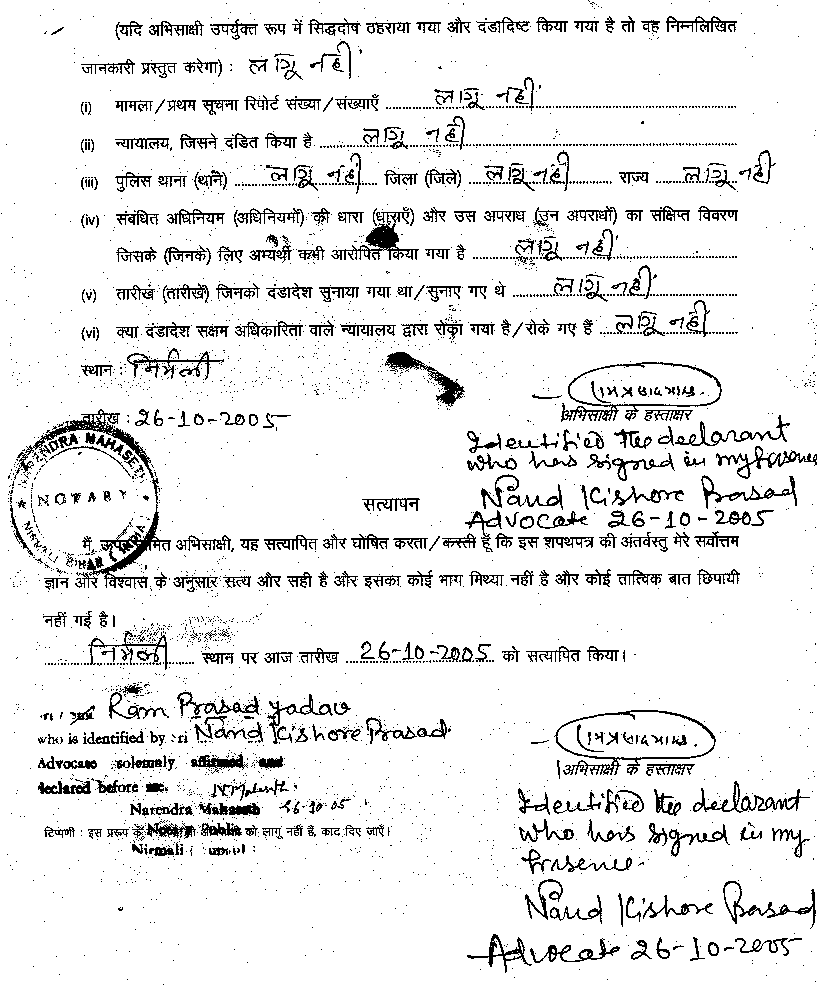 (यदि अभिसाक्षी उपर्युक्त रूप में सिद्धदोष ठहराया गया और दंडादिष्ट किया गया है तो वह निम्नलिखित
जानकारी प्रस्तुत करेगा) : लागू नहीं
(i) मामला/प्रथम सूचना रिपोर्ट संख्या/संख्याएँ लागू नहीं
(ii) न्यायालय, जिसने दंडित किया है लागू नहीं
(iii) पुलिस थाना (थाने) लागू नहीं जिला (जिले) लागू नहीं राज्य लागू नहीं
(iv) संबंधित अधिनियम (अधिनियमों) की धारा (धाराएँ) और उस अपराध (उन अपराधों) का संक्षिप्त विवरण
जिसके (जिनके) लिए अभ्यर्थी कभी आरोपित किया गया है लागू नहीं
(v) तारीख (तारीखें) जिनको दंडादेश सुनाया गया था/सुनाए गए थे लागू नहीं
(vi) क्या दंडादेश सक्षम अधिकारिता वाले न्यायालय द्वारा रोका गया है/रोके गए हैं लागू नहीं
स्थान : निर्मली
तारीख : 26-10-2005
रामप्रसाद यादव
अभिसाक्षी के हस्ताक्षर
Identified the declarant
who has signed in my presence
Nand Kishore Prasad
Advocate 26-10-2005
NARENDRA MAHASETH
NOTARY
NIRMALI BIHAR (INDIA)
सत्यापन
मैं, अभिसाक्षी, यह सत्यापित और घोषित करता/करती हूँ कि इस शपथपत्र की अंतर्वस्तु मेरे सर्वोत्तम
ज्ञान और विश्वास के अनुसार सत्य और सही है और इसका कोई भाग मिथ्या नहीं है और कोई तात्विक बात छिपायी
नहीं गई है।
निर्मली स्थान पर आज तारीख 26-10-2005 को सत्यापित किया।
Ram Prasad Yadav
who is identified by Nand Kishore Prasad
Advocate solemaly affirmed and
declared before me.
Narendra Mahaseth 26-10-05
टिप्पणी : इस प्ररूप के Notary Public को लागू नहीं हैं, काट दिए जाएँ।
Nirmali
रामप्रसाद यादव
अभिसाक्षी के हस्ताक्षर
Identified the declarant
who has signed in my
presence.
Nand Kishore Prasad
Advocate 26-10-2005